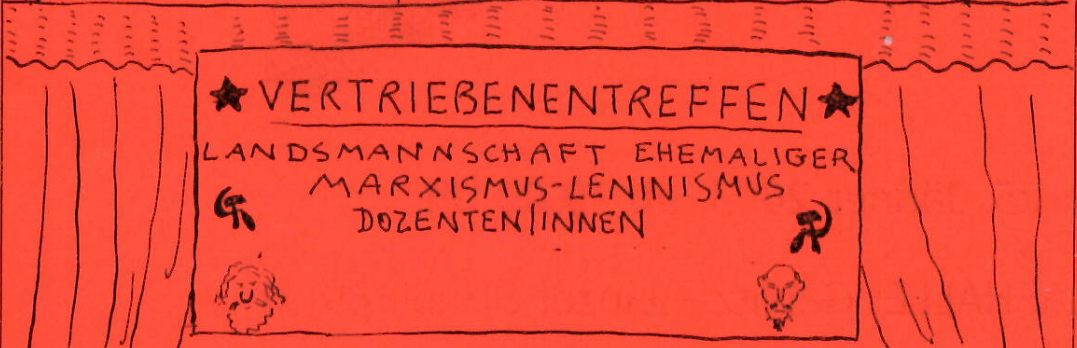 VERTRIEBENENTREFFEN
LANDSMANNSCHAFT EHEMALIGER
MARXISMUS-LENINISMUS
DOZENTEN/INNEN